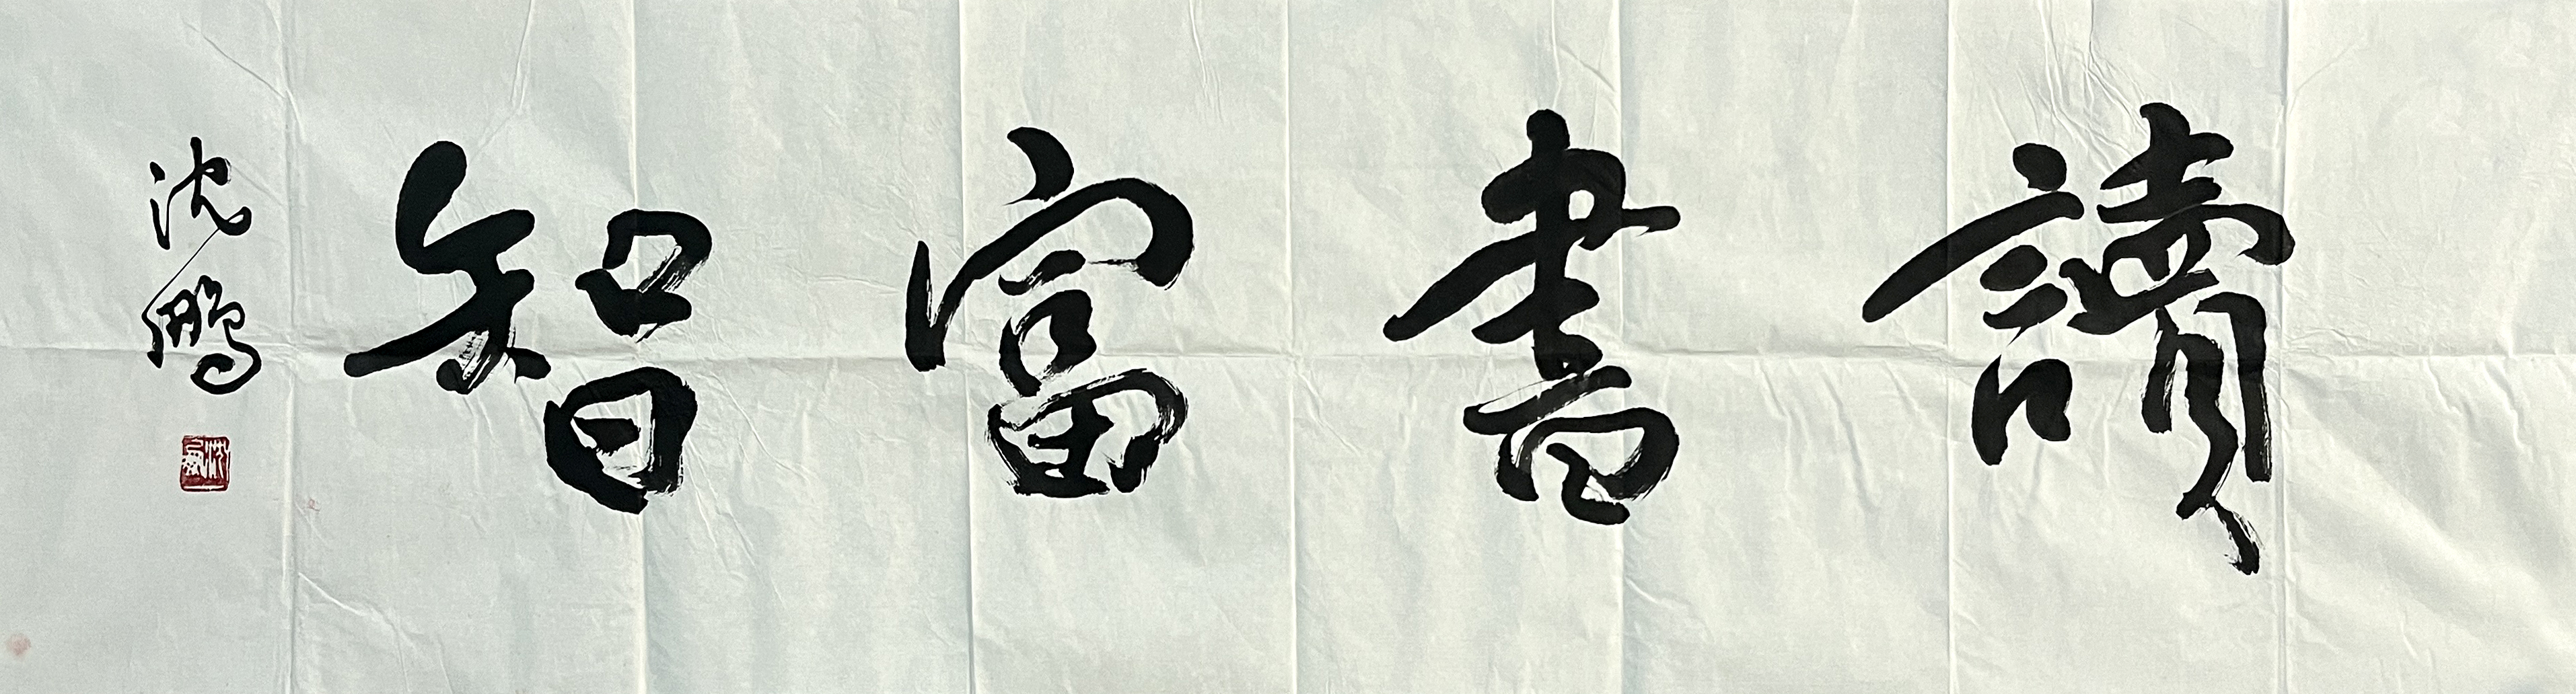 讀書富智
沈鵬